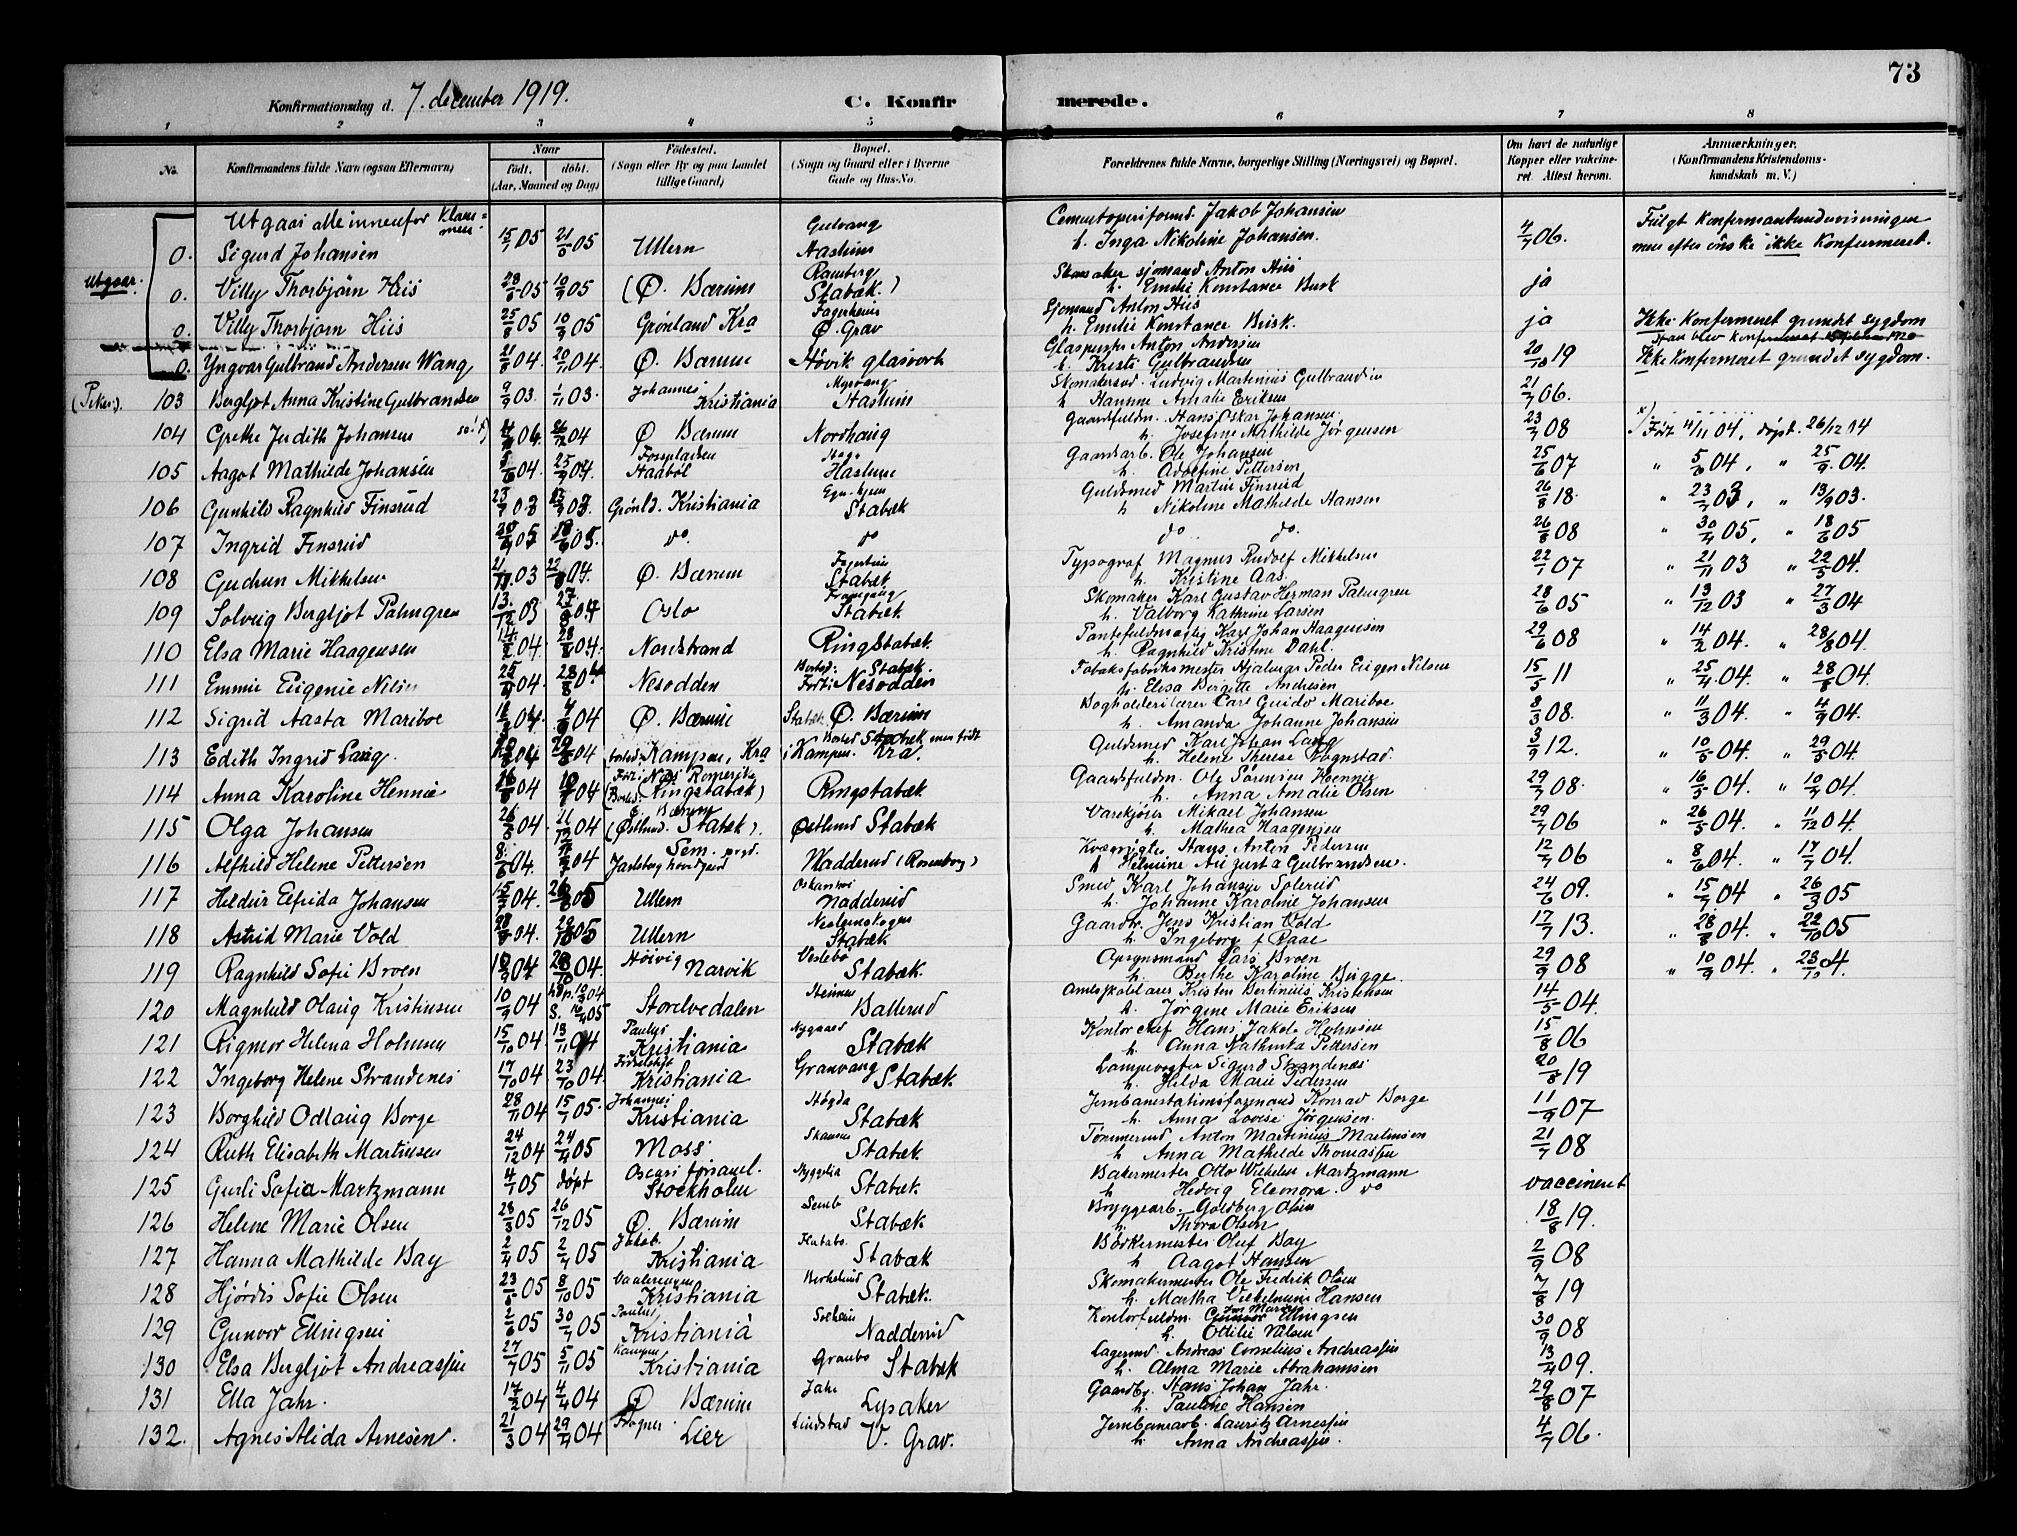 73
Konfirmationsdag d. 7. december 1919. C. Konfirmerede.
1 2 3 4 5 6 7 8
No. Konfirmandens fulde Navn (ogsaa Efternavn) Naar födt. döbt. (Aar, Maaned og Dag) Födested. (Sogn eller By og paa Landet tillige Gaard) Bopæl. (Sogn og Gaard eller i Byerne Gade og Hus-No. Forældrenes fulde Navne, borgerlige Stilling (Næringsvei) og Bopæl. Om havt de naturlige Kopper eller vakcineret. Attest herom. Anmærkninger. (Konfirmandens Kristendomskundskab m. V.)
Utgaar alle innenfor Klammen
utgaar.
0. Sigurd Johansen 15/1 05 05 Ullern Haslum Jakob Johansen
h. Inga Nikoline Johansen. 4/7 06. Fulgt konfirmantundervisningen
men efter önske ikke konfirmeret.
0. Villy Thorbjörn Hiis 05 10/9 05 (Ø. Bærum Ramberg Stabæk.) Skomaker sjömand Anton Hiis
h. Emilie Konstance Busk ja
0. Villy Thorbjørn Hiis 05 10/9 05 Grönland Kra Fagerheim Ø. Grav Sjömand Anton Hiis
h. Emilie Konstance Busk. ja Ikke konfirmeret grundet sygdom
0. Yngvar Gulbrand Andersen Wang 04 20/11 04 Ø. Bærum Høvik glasverk Anton Andersen
h. Kristi Gulbrandsen 20/10 19 Ikke konfirmeret grundet sygdom.
(Piker:). 103 Bergljot Anna Kristine Gulbrandsen 9/9 03. 1/11 03. Johannes Kristiania Haslum Ludvig Martinius Gulbrandsen
h Hanne Amalie Eriksen 21/7 06.
104 Grethe Judith Johansen 04. 26/12 04 Ø Bærum Nordhaug Gaardfuldm. Hans Oskar Johansen.
h. Josefine Mathilde Jørgensen 23/7 08 Født 4/11 04, døpt. 26/12 04
105 Aagot Mathilde Johansen 04. 25/9 04. Haslum Gaardsarb. Ole Johansen
h. Adolfine Pettersen 25/6 07 " 04, " 25/9 04.
106 Gunhild Ragnhild Finsrud 23/7 03 03. Grönld. Kristiania Stabæk Guldsmed Martin Finsrud
h Nikoline Mathilde Hansen 26/8 18. " 23/7 03, " 13/9 03.
107 Ingrid Finsrud 05 05. do. do do. do. 26/8 08 " 30/4 05, " 18/6 05
108 Gudrun Mikkelsen 21/11 03 04. Ø. Bærum Stabæk Typograf Magnus Rudolf Mikkelsen
h. Kristine Aas. 22/1 07 " 21/11 03 " 22/5 04.
109 Solveig Bergljot Palmgren 13/12 03 27/3 04 Oslo Stabæk Skomaker Karl Gustav Herman Palmgren
h. Valborg Kathrine Larsen 28/6 05 " 13/12 03 " 27/3 04
110 Elsa Marie Haagensen 14/2 04. 28/8 04. Nordstrand Ringstabæk Karl Johan Haagensen
h. Ragnhild Kristine Dahl. 29/6 08 " 14/2 04. " 28/8 04.
111 Emmie Eugenie Nilsen 25/4 04. 28/8 04 Nesodden Bosted: Stabæk. Nesodden Tobaksfabriksmester Hjalmar Peder Eugen Nilsen
h. Elisa Birgitte Andresen 15/5 11 " 25/4 04. " 28/8 04.
112 Sigrid Aasta Mariboe 11/3 04. 4/9 04 Ø. Bærum Stabæk Ø. Bærum Carl Guido Mariboe
h. Amanda Johanne Johansen 8/3 08. " 11/3 04. " 4/9 04.
113 Edith Ingrid Lang. 04 29/5 04 Kampen, Kra Bosted Stabæk men född i Kampen Kra. Guldsmed Karl Johan Lang
h. Helene Therese 3/9 12. " 10/5 04. " 29/5 04.
114 Anna Karoline Hennie 04 04 Født: Nes Romerike (Bosted: Ringstabæk) Ringstabæk Gaardsfuldm. Ole Sørensen Hennie
h. Anna Amalie Olsen 29/7 08. " 16/5 04. " 10/7 04.
115 Olga Johansen 26/5 04. 11/12 04 Ø. Bærum (Østlund. Stabæk). Østlund Stabæk Varekjører Mikael Johansen
h. Mathea Haagensen 29/7 06 " 26/5 04. " 11/12 04.
116 Alfhild Helene Pettersen 8/6 04. 17/7 04 Sem. Jarlsberg hovedgaard Nadderud (Rosenborg) Hans Anton Pedersen
h Helmine Augusta Gulbrandsen. 12/7 06 " 8/6 04. " 17/7 04.
117 Heldur Elfrida Johansen 15/7 04. 26/3 05 Ullern Nadderud Smed Karl Johansen
h. Johanne Karoline Johansen 24/6 09. " 15/7 04 " 26/3 05
118 Astrid Marie Vold 28/8 04. 05 Ullern Stabæk Gaardbr. Jens Kristian Vold
h. Ingeborg f Raae 17/7 13. " 28/8 04. " 22/10 05
119 Ragnhild Sofie Broen 10/9 04 23/10 04. Narvik Veslebo Stabæk. Opsynsmand Lars Broen
h. Berthe Karoline Bugge. 29/9 08 " 10/9 04. " 23/10 04.
120 Magnhild Olaug Kristensen 10/9 04 05 Storelvedalen Ballerud Amtsskolelærer Kristen Bertinius Kristensen
h. Jørgine Marie Eriksen 14/5 04.
121 Rigmor Helena Holmsen 15/10 04. 13/11 04 Paulus Kristiania Nygaard Stabæk Kontorchef Hans Jakob Holmsen
h. Anna Nathinka Pettersen 15/8 06
122 Ingeborg Helene Strandenes 17/10 04 23/10 04. Kristiania Granvang Stabæk. Sigurd Strandenæs
h. Hilda Marie Pedersen 20/8 19
123 Borghild Odlaug Borge 28/11 04 15/7 05. Johannes Kristiania Høgda Stabæk Jernbanestationsformand Konrad Borge
h. Anna Lovise Jørgensen. 11/9 07
124 Ruth Elisabeth Martinsen 24/12 04 24/4 05 Moss Stabæk. Tömmermd. Anton Martinius Martinsen
h Anna Mathilde Thomassen 21/7 08
125 Gurli Sofia Martzmann 4/1 05 døpt Oscars församl. Stockholm Stabæk. Bakermester Otto Wilhelm Martzmann
h Hedvig Eleonora. do vaccineret
126 Helene Marie Olsen 28/3 05 26/12 05 Ø. Bærum Stabæk Bryggearb. Goldberg Olsen
h. Thora Olsen 18/8 19.
127 Hanna Mathilde Bay 2/4 05 2/7 05 Jakob. Kristiania Stabæk Bödkermester Oluf Bay
h Aagot Hansen 2/9 08
128 Hjördis Sofie Olsen 05 8/10 05 Vaalerengen Kristiania Stabæk. Skomakermester Ole Fredrik Olsen
h. Martha Vilhelmine Hansen 7/8 19
129 Gunvor Ellingsen 2/6 05 30/7 05 Paulus Kristiania Solheim Nadderud Kontorfuldm. Ellingsen
h. Ottilie Nilsen 30/9 08
130 Elsa Bergljot Andreassen 27/7 05 5/11 05 Kampen Kristiania Granbo Stabæk Lagermd. Andreas Cornelius Andreassen
h. Alma Marie Abrahamsen 13/4 09.
131 Ella Jahr. 17/2 04 4/4 04 Ø Bærum Jahr Lysaker Gaardbr. Hans Johan Jahr.
h. Pauline Hansen 29/8 07
132. Agnes Alida Arnesen. 21/3 04 29/4 04 Frogner Lier Lindstad V. Grav. Jernbanearb. Lauritz Arnessen
h. Anna Andreassen. 4/7 06.